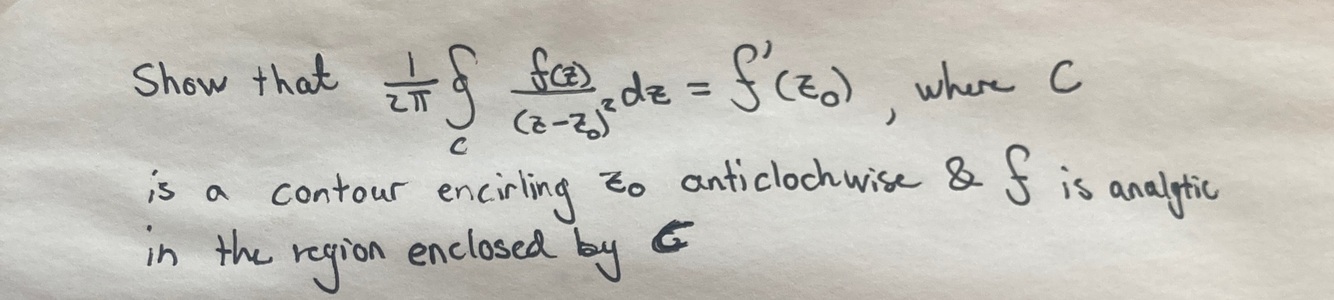 Show that $\frac{1}{2\pi} \oint_C \frac{f(z)}{(z-z_0)^2} dz = f'(z_0)$, where C
is a contour encirling $z_0$ anticlochwise & f is analytic
in the region enclosed by C